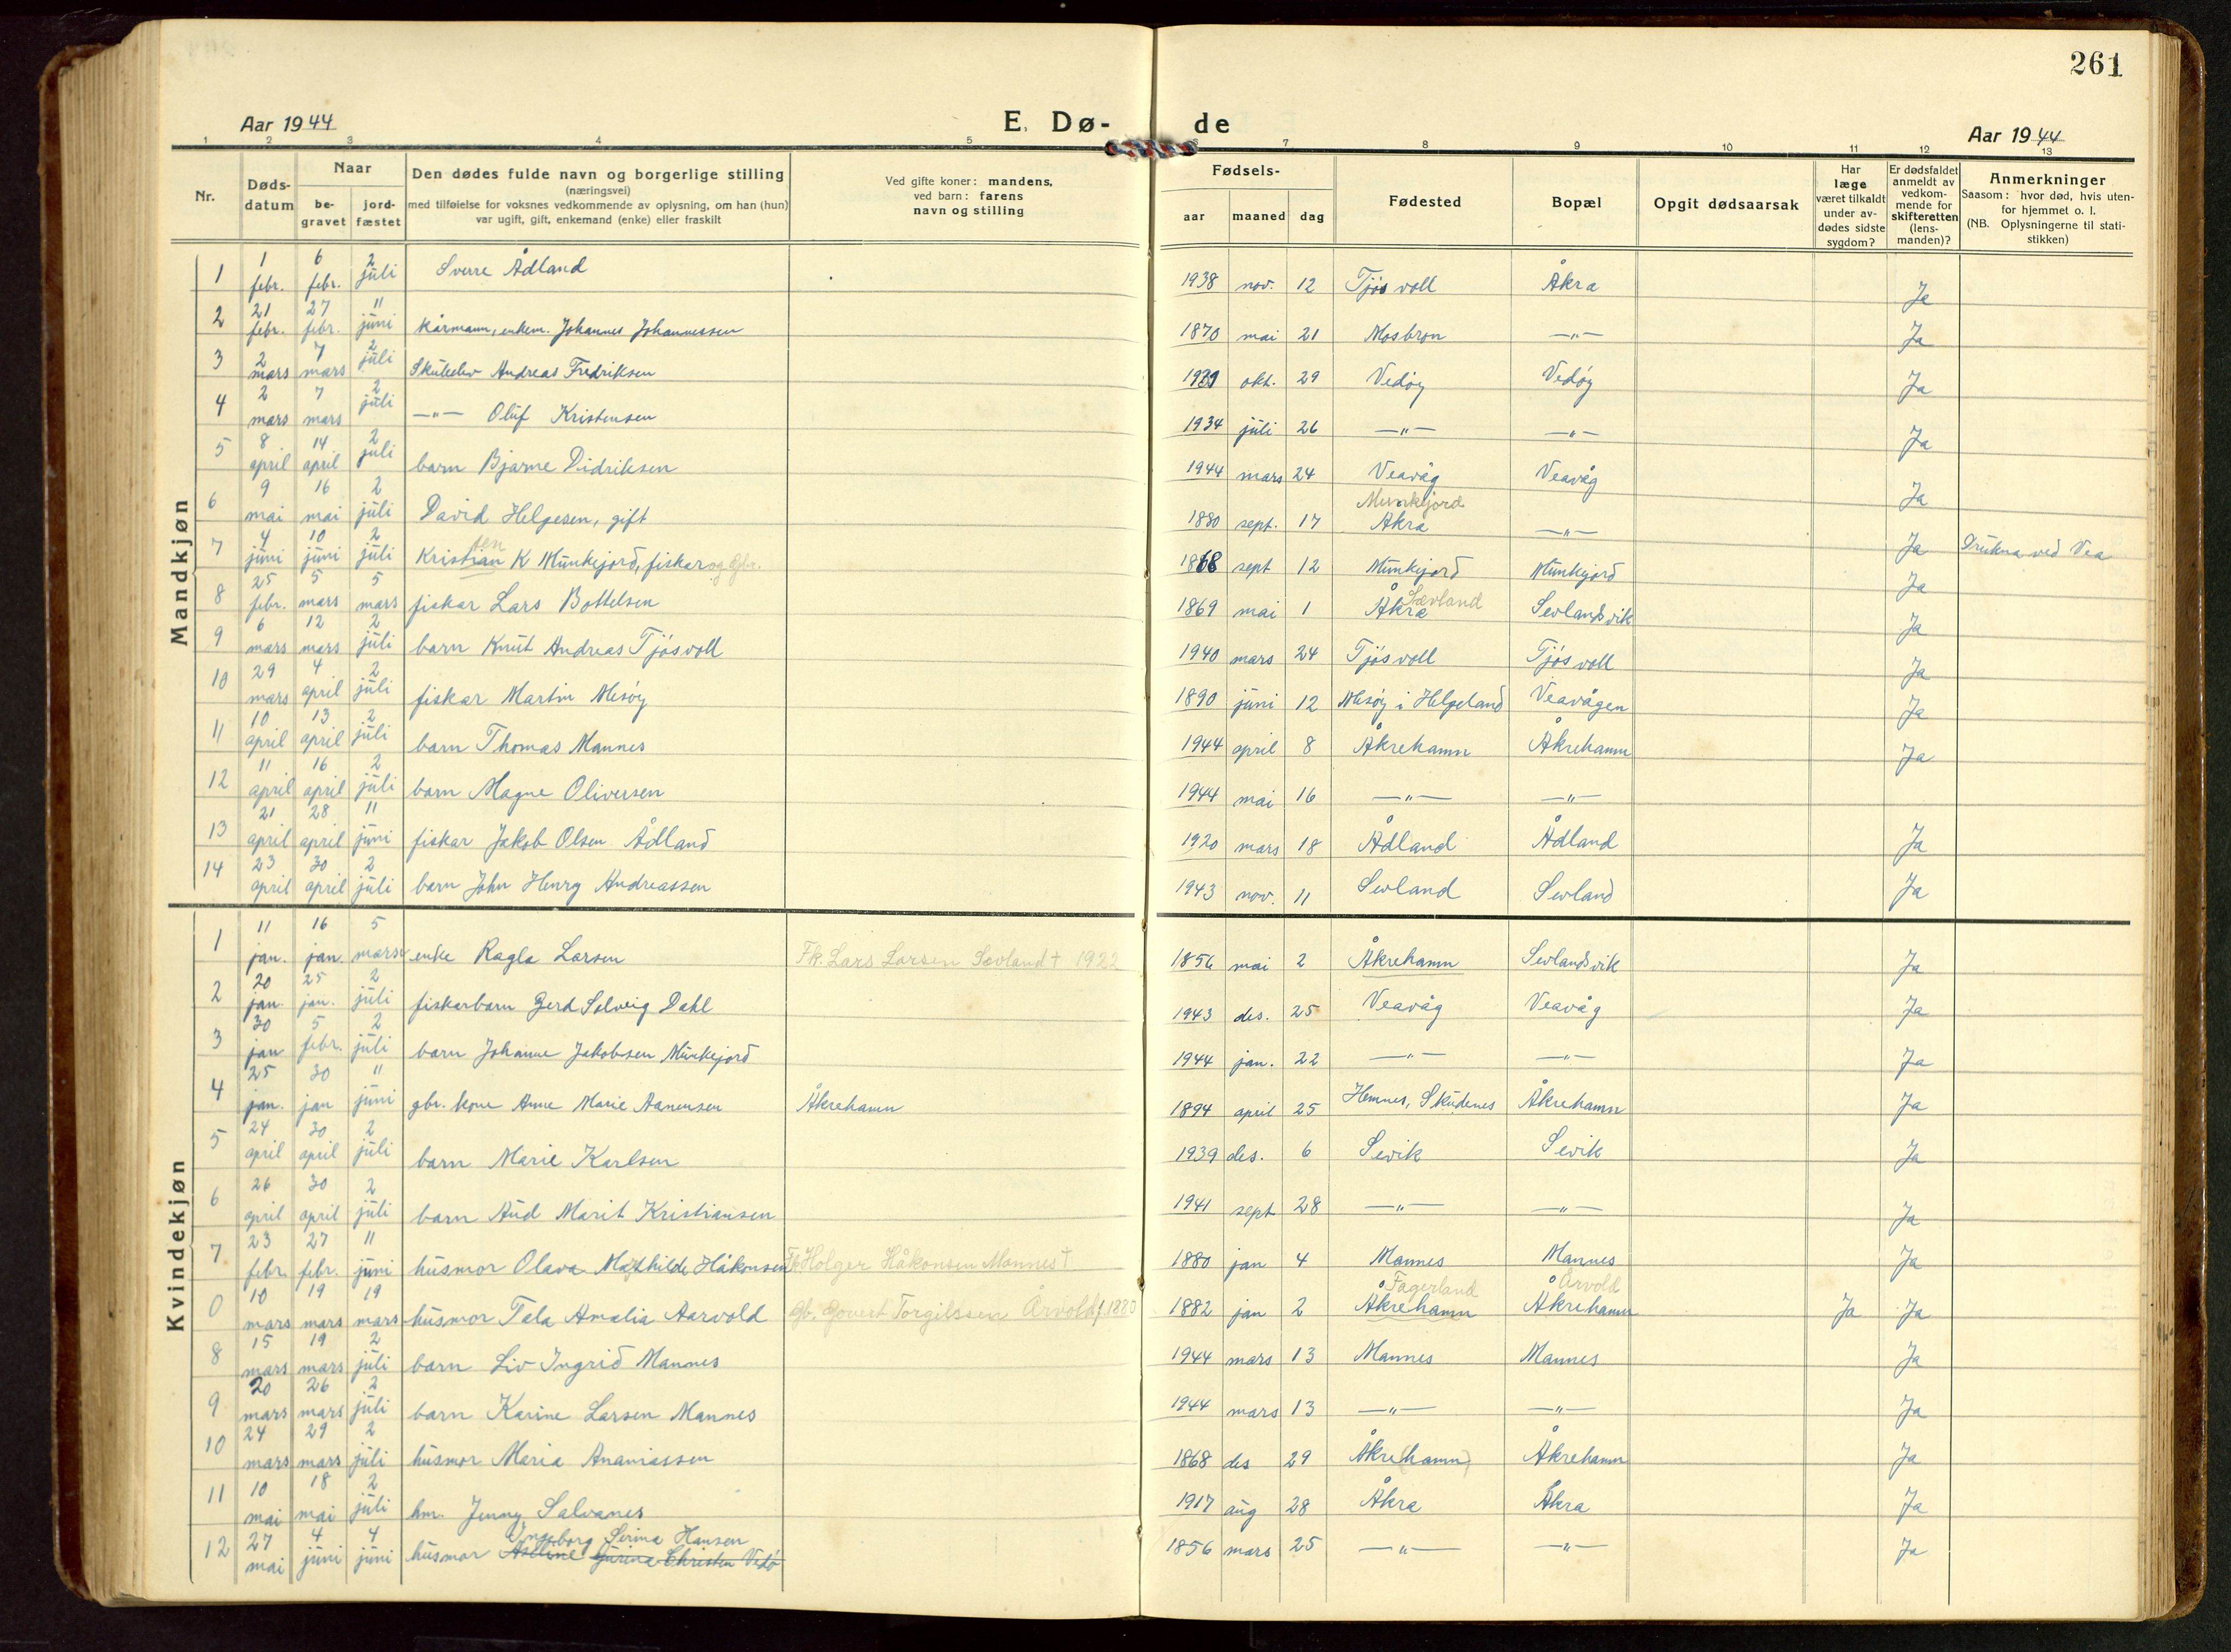 261
Aar 1944 E. Dø- de Aar 1944
1 2 3 4 5 6 7 8 9 10 11 12 13
Nr. Døds-datum Naar be-gravet jord-fæstet Den dødes fulde navn og borgerlige stilling (næringsvei) med tilføielse for voksnes vedkommende av oplysning, om han (hun) var ugift, gift, enkemand (enke) eller fraskilt Ved gifte koner: mandens, ved barn: farens navn og stilling Fødsels- aar maaned dag Fødested Bopæl Opgit dødsaarsak Har læge været tilkaldt under av-dødes sidste sygdom? Er dødsfaldet anmeldt av vedkom-mende for skifteretten (lens-manden)? Anmerkninger Saasom: hvor død, hvis uten-for hjemmet o. l. (NB. Oplysningerne til stati-stikken)
Mandkjøn
1 1 febr. 6 febr. 2 juli Sverre Ådland 1938 nov. 12 Tjøsvoll Åkra Ja
2 21 febr. 27 febr. 11 juni kårmann, enkem. Johannes Johannessen 1870 mai 21 Mosbron —"— Ja
3 2 mars 7 mars 2 juli Skuleelev Andreas Fredriksen 1931 okt. 29 Vedøy Vedøy Ja
4 2 mars 7 mars 2 juli —"— Oluf Kristensen 1934 juli 26 —"— —"— Ja
5 8 april 14 april 2 juli barn Bjarne Didriksen 1944 mars 24 Veavåg Veavåg Ja
6 9 mai 16 mai 2 juli David Helgesen, gift 1880 sept. 17 Munkejord Akra —"— Ja Drukna ved Vea
7 4 juni 10 juni 2 juli Kristian sen K Munkejord, fiskar og Gbr. 1868 sept 12 Munkejord Munkejord Ja
8 25 febr. 5 mars 5 mars fiskar Lars Bottelsen 1869 mai 1 Åkra Sævland Sevlandsvik Ja
9 6 mars 12 mars 2 juli barn Knut Andreas Tjøsvoll 1940 mars 24 Tjøsvoll Tjøsvoll Ja
10 29 mars 4 april 2 juli fiskar Martin Mesøy 1890 juni 12 Mesøy i Helgeland Veavågen Ja
11 10 april 13 april 2 juli barn Thomas Mannes 1944 april 8 Åkrehamn Åkrehamn Ja
12 11 april 16 april 2 juli barn Magne Oliversen 1944 mai 16 —"— —"—
13 21 april 28 april 11 juni fiskar Jakob Olsen Ådland 1920 mars 18 Ådland Ådland Ja
14 23 april 30 april 2 juli barn John Henry Andreassen 1943 nov. 11 Sevland Sevland Ja
Kvindekjøn
1 11 jan. 16 jan. 5 mars enke Ragla Larsen Fk. Lars Larsen Sævland † 1922 1856 mai 2 Åkrehamn Sevlandsvik Ja
2 20 jan. 25 jan. 2 juli fiskarbarn Gerd Solveig Dahl 1943 des. 25 Veavåg Veavåg Ja
3 30 jan 5 febr. 2 juli barn Johanne Jakobsen Munkejord 1944 jan. 22 —"— —"— Ja
4 25 jan. 30 jan 11 juni gbr. kone Anne Marie Aanensen Åkrehamn 1894 april 25 Hemnes, Skudenes Åkrehamn Ja
5 24 april 30 april 2 juli barn Marie Karlsen 1939 des. 6 Sevik Sevik Ja
6 26 april 30 april 2 juli barn Aud Marit Kristiansen 1941 sept 28 —"— —"— Ja
7 23 febr. 27 febr. 11 juni husmor Olava Mathilde Håkonsen Fk. Holger Håkonsen Mannes † 1880 jan 4 Mannes Mannes Ja
0 10 mars 19 mars 19 mars husmor Tala Amalia Aarvold Gb. Govert Torgilssen Årvold f. 1880 1882 jan 2 Fagerland Åkrehamn Årvold Åkrehamn Ja Ja
8 15 mars 19 mars 2 juli barn Liv Ingrid Mannes 1944 mars 13 Mannes Mannes Ja
9 20 mars 26 mars 2 juli barn Karine Larsen Mannes 1944 mars 13 —"— —"— Ja
10 24 mars 29 mars 2 juli husmor Maria Ananiassen 1868 des 29 Åkre(hamn) Åkrehamn Ja
11 10 mai 18 mai 2 juli hm. Jenny Salvanes 1917 aug 28 Åkra Åkra Ja
12 27 mai 4 juni 4 juni husmor Ingeborg Serina Hansen Christen Vedø 1856 mars 25 —"— —"— Ja